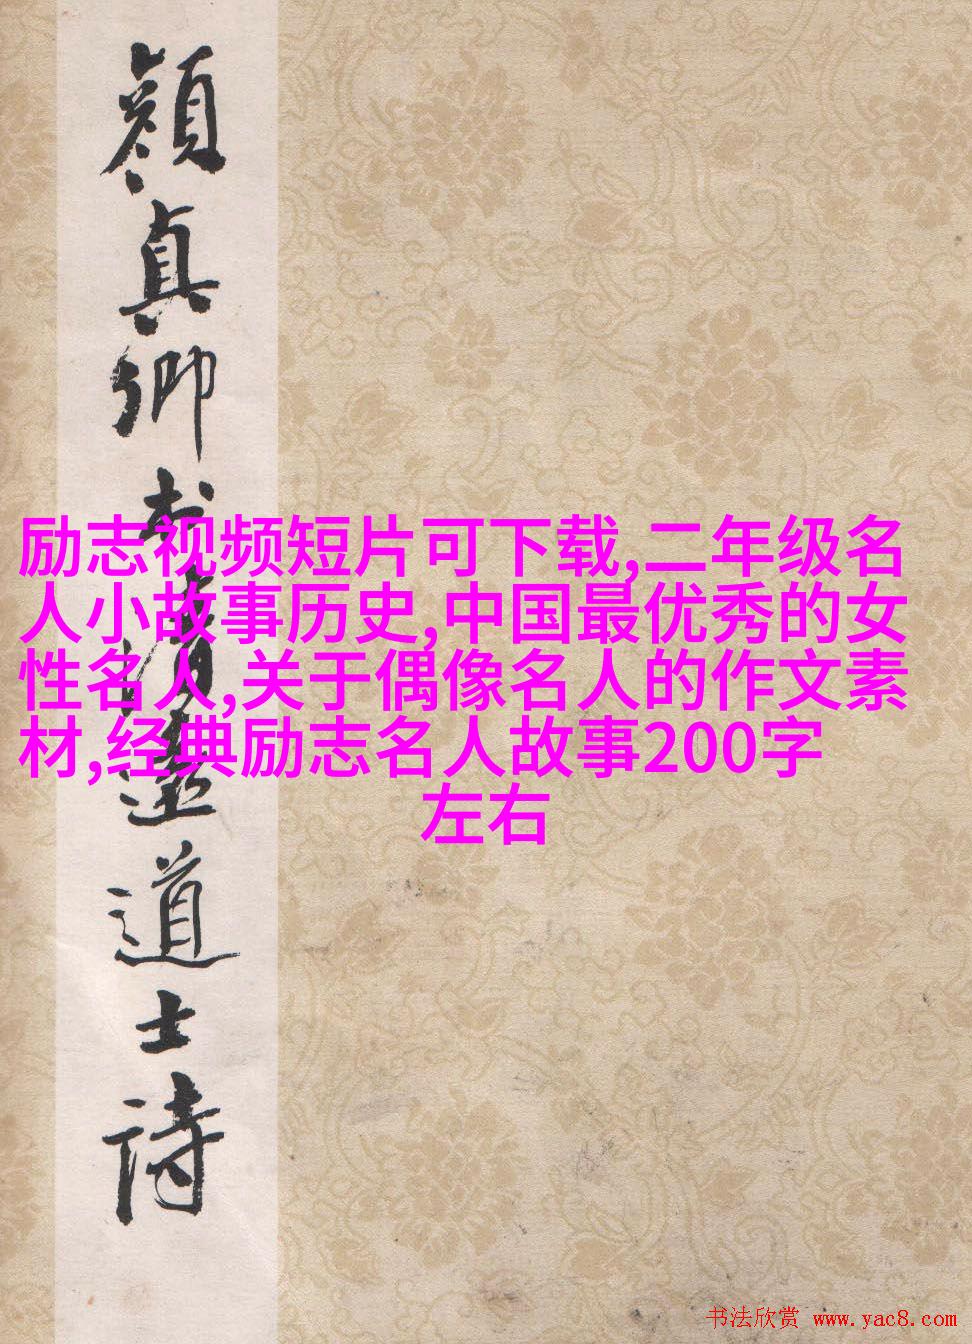 顔真卿书清遠道士诗
励志视频短片可下载,二年级名
人小故事历史,中国最优秀的女
性名人,关于偶像名人的作文素
材,经典励志名人故事200字
左右
书法欣赏 www.yac8.com